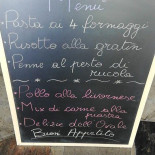 Menù
• Pasta ai 4 formaggi
• Risotto alla gratin
• Penne al pesto di
rucola
• Pollo alla livornese
• Mix di carne alla
piastra
• Delizie dell'Ovale
Buon Appetito